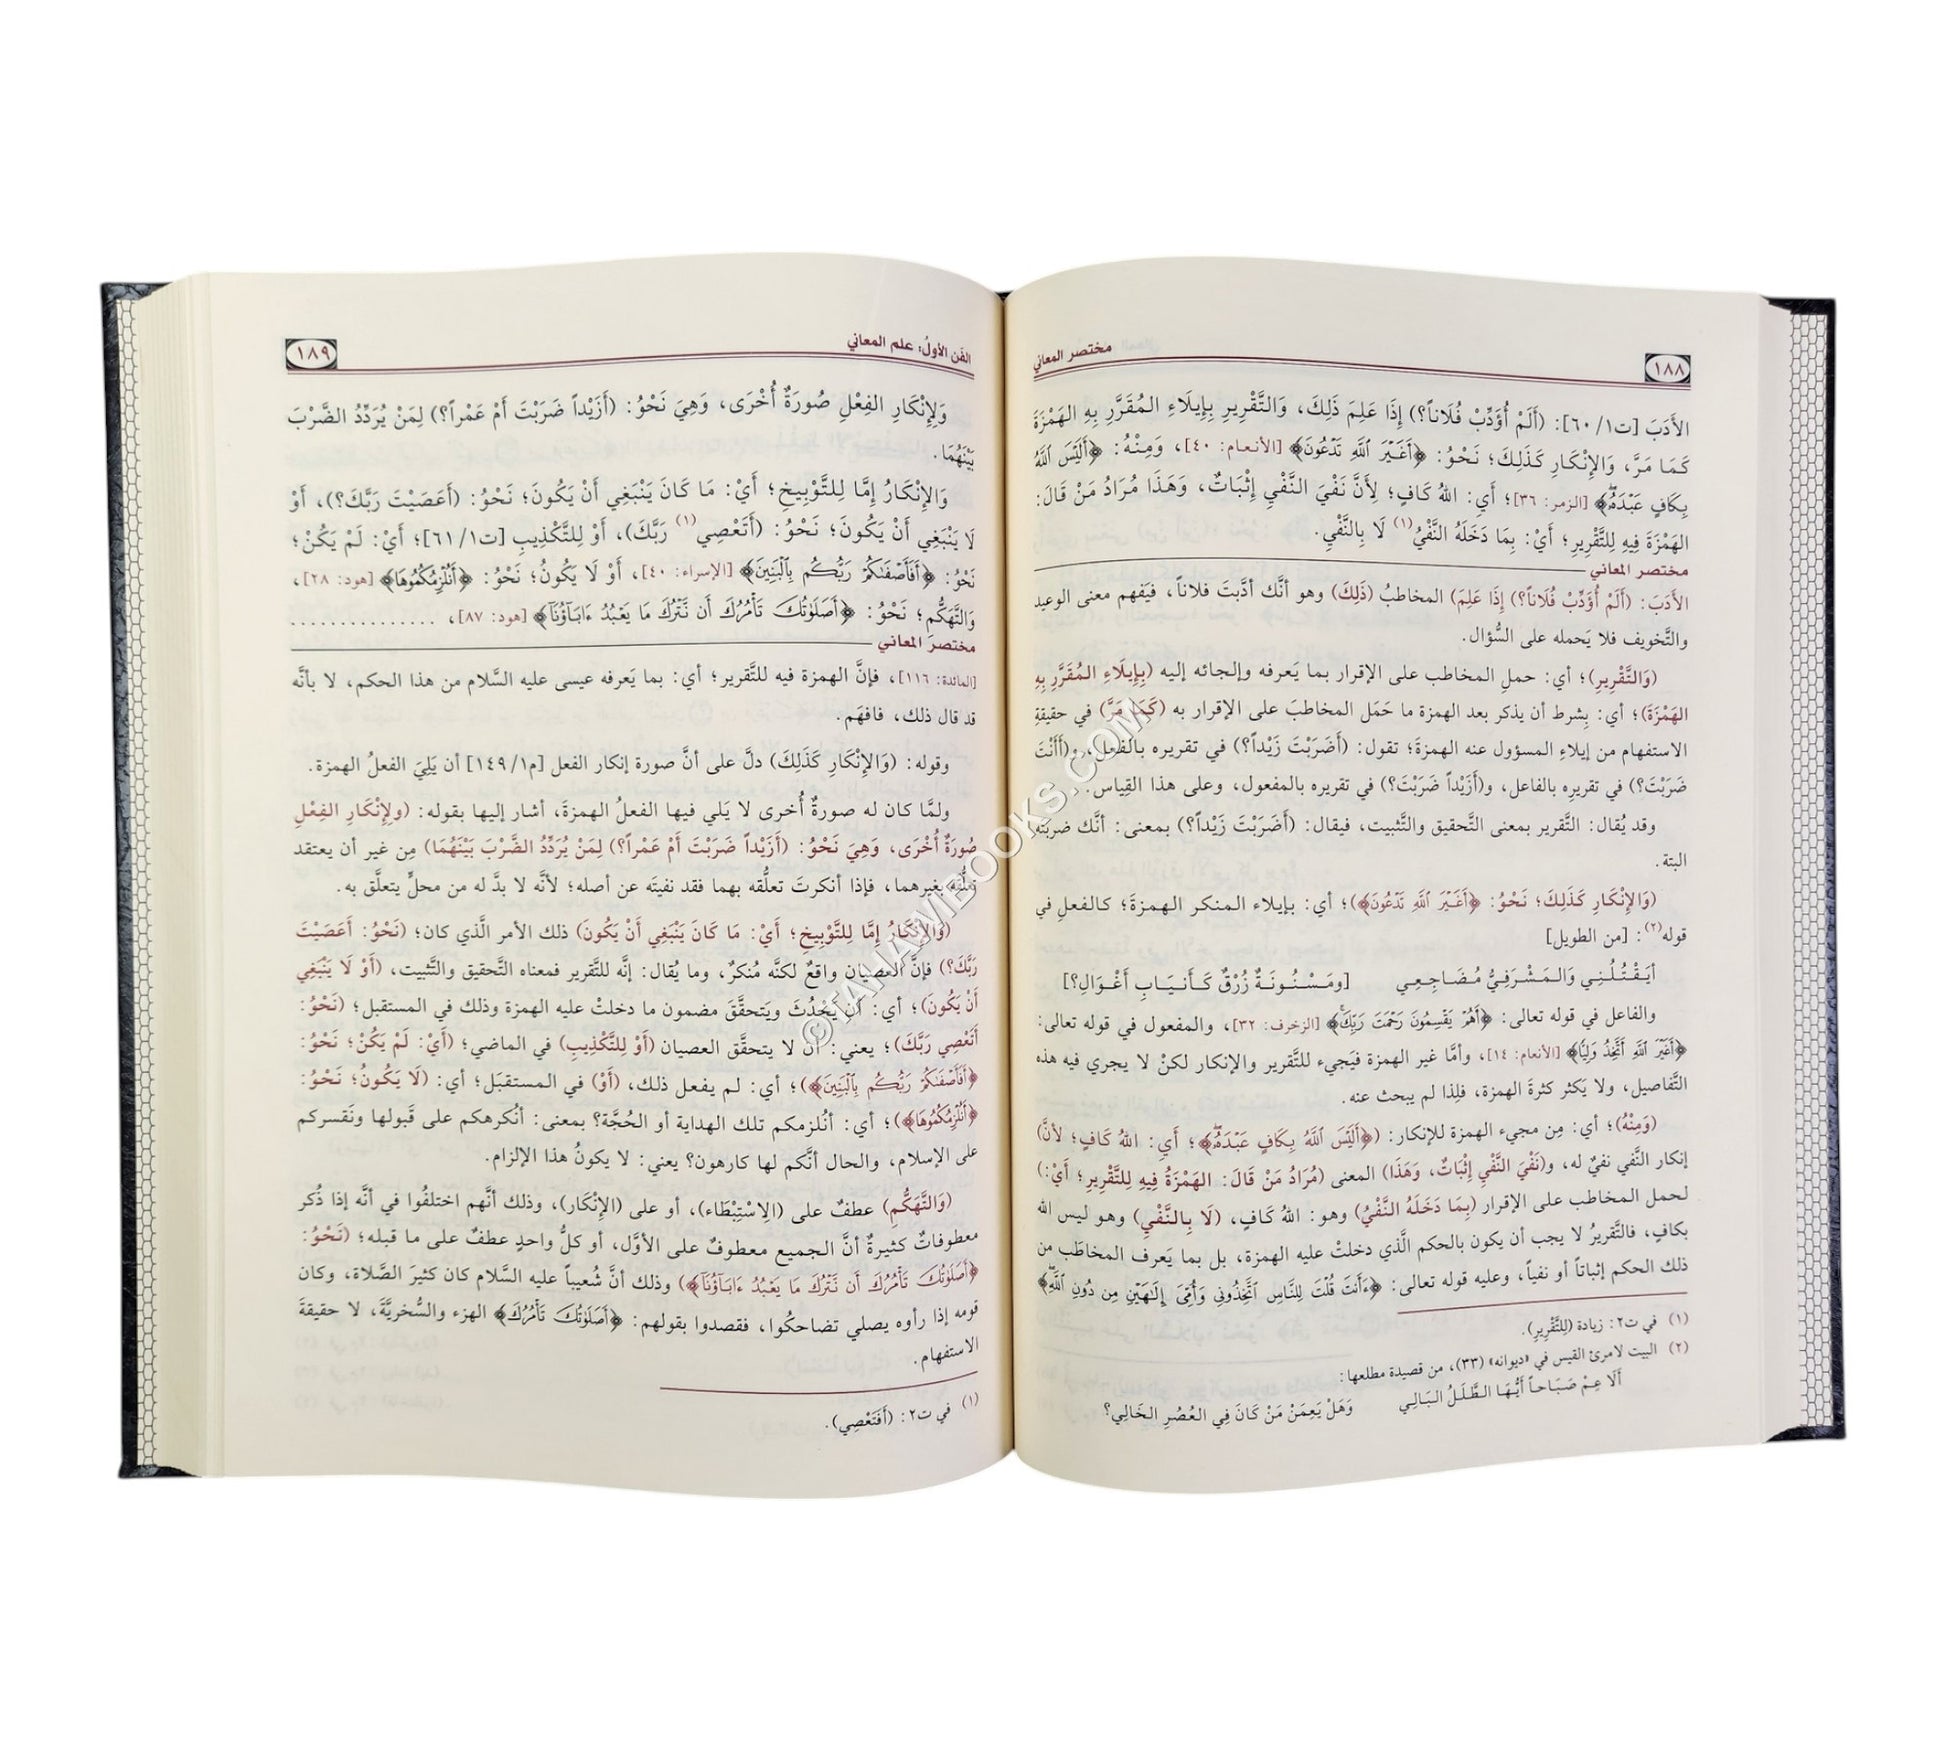 ١٨٨
مختصر المعاني
الأَدَبَ [ت١/٦٠]: (أَلَمْ أُؤَدِّبْ فُلَاناً؟) إِذَا عَلِمَ ذَلِكَ، وَالتَّقْرِيرِ بِإِيلَاءِ المُقَرَّرِ بِهِ الهَمْزَةَ
كَمَا مَرَّ، وَالإِنْكَارِ كَذَلِكَ؛ نَحْوُ: ﴿أَغَيْرَ ٱللَّهِ تَدْعُونَ﴾ [الأنعام: ٤٠]، وَمِنْهُ: ﴿أَلَيْسَ ٱللَّهُ
بِكَافٍ عَبْدَهُۥ﴾ [الزمر: ٣٦]؛ أَيِ: اللهُ كَافٍ؛ لِأَنَّ نَفْيَ النَّفْيِ إِثْبَاتٌ، وَهَذَا مُرَادُ مَنْ قَالَ:
الهَمْزَةَ فِيهِ لِلتَّقْرِيرِ؛ أَيْ: بِمَا دَخَلَهُ النَّفْيُ(١) لَا بِالنَّفْيِ.
مختصر المعاني
الأَدَبَ: (أَلَمْ أُؤَدِّبْ فُلَاناً؟) إِذَا عَلِمَ) المخاطبُ (ذَلِكَ) وهو أنَّك أدَّبتَ فلاناً، فيَفهم معنى الوعيد
والتَّخويف فلا يَحمله على السُّؤال.
(وَالتَّقْرِيرِ)؛ أي: حملِ المخاطب على الإقرار بما يَعرفه وإلجائه إليه (بِإِيلَاءِ المُقَرَّرِ بِهِ
الهَمْزَةَ)؛ أي: بِشرط أن يذكر بعد الهمزة ما حَمَل المخاطبَ على الإقرار به (كَمَا مَرَّ) في حقيقةِ
الاستفهام من إيلاءِ المسؤول عنه الهمزةَ؛ تقول: (أَضَرَبْتَ زَيْداً؟) في تقريره بالفعل، و(أَأَنْتَ
ضَرَبْتَ؟) في تقريرِه بالفاعل، و(أَزَيْداً ضَرَبْتَ؟) في تقريره بالمفعول، وعلى هذا القِياس.
وقد يُقال: التَّقرير بمعنى التَّحقيق والتَّثبيت، فيقال: (أَضَرَبْتَ زَيْداً؟) بمعنى: أنَّك ضربتَه
البتة.
(وَالإِنْكَارِ كَذَلِكَ؛ نَحْوُ: ﴿أَغَيْرَ ٱللَّهِ تَدْعُونَ﴾)؛ أي: بإيلاء المنكر الهمزةَ؛ كالفعلِ في
قوله(٢): [من الطويل]
أيَـقْـتُـلُـنِـي وَالـمَـشْـرَفِـيُّ مُـضَـاجِـعِـي [ومَـسْـنُـونَـةٌ زُرْقٌ كَـأَنـيَـابِ أَغْـوَالِ؟]
والفاعل في قوله تعالى: ﴿أَهُمْ يَقْسِمُونَ رَحْمَتَ رَبِّكَ﴾ [الزخرف: ٣٢]، والمفعول في قوله تعالى:
﴿أَغَيْرَ ٱللَّهِ أَتَّخِذُ وَلِيًّا﴾ [الأنعام: ١٤]، وأمَّا غير الهمزة فيَجيء للتَّقرير والإنكار لكنْ لا يجري فيه هذه
التَّفاصيل، ولا يَكثر كثرةَ الهمزة، فلِذا لم يبحث عنه.
(وَمِنْهُ)؛ أي: مِن مجيء الهمزة للإنكار: (﴿أَلَيْسَ ٱللَّهُ بِكَافٍ عَبْدَهُۥ﴾؛ أَيِ: اللهُ كَافٍ؛ لأنَّ)
إنكار النَّفي نفيٌ له، و(نَفْيَ النَّفْيِ إِثْبَاتٌ، وَهَذَا) المعنى (مُرَادُ مَنْ قَالَ: الهَمْزَةُ فِيهِ لِلتَّقْرِيرِ؛ أَيْ:)
لحمل المخاطب على الإقرار (بِمَا دَخَلَهُ النَّفْيُ) وهو: اللهُ كَافٍ، (لَا بِالنَّفْيِ) وهو ليس الله
بكافٍ، فالتَّقريرُ لا يجب أن يكون بالحكم الَّذي دخلتْ عليه الهمزة، بل بما يَعرف المخاطَب من
ذلك الحكم إثباتاً أو نفياً، وعليه قوله تعالى: ﴿ءَأَنتَ قُلْتَ لِلنَّاسِ ٱتَّخِذُونِى وَأُمِّىَ إِلَٰهَيْنِ مِن دُونِ ٱللَّهِ﴾
(١) في ت٢: زيادة (لِلتَّقْرِيرِ).
(٢) البيت لامرئ القيس في «ديوانه» (٣٣)، من قصيدة مطلعها:
أَلَا عِـمْ صَـبَـاحـاً أَيُّـهَـا الـطَّـلَـلُ الـبَـالِـي وَهَلْ يَعِمَنْ مَنْ كَانَ فِي العُصُرِ الخَالِي؟
الفَن الأولُ: علم المعاني
١٨٩
وَلِإِنْكَارِ الفِعْلِ صُورَةٌ أُخْرَى، وَهِيَ نَحْوُ: (أَزَيْداً ضَرَبْتَ أَمْ عَمْراً؟) لِمَنْ يُرَدِّدُ الضَّرْبَ
بَيْنَهُمَا.
وَالإِنْكَارُ إِمَّا لِلتَّوْبِيخِ؛ أَيْ: مَا كَانَ يَنْبَغِي أَنْ يَكُونَ؛ نَحْوُ: (أَعَصَيْتَ رَبَّكَ؟)، أَوْ
لَا يَنْبَغِي أَنْ يَكُونَ؛ نَحْوُ: (أَتَعْصِي(١) رَبَّكَ)، أَوْ لِلتَّكْذِيبِ [ت١/٦١]؛ أَيْ: لَمْ يَكُنْ؛
نَحْوُ: ﴿أَفَأَصْفَىٰكُمْ رَبُّكُم بِٱلْبَنِينَ﴾ [الإسراء: ٤٠]، أَوْ لَا يَكُونُ؛ نَحْوُ: ﴿أَنُلْزِمُكُمُوهَا﴾ [هود: ٢٨]،
وَالتَّهَكُّمِ؛ نَحْوُ: ﴿أَصَلَوٰتُكَ تَأْمُرُكَ أَن نَّتْرُكَ مَا يَعْبُدُ ءَابَآؤُنَآ﴾ [هود: ٨٧]، ...............
مختصر المعاني
[المائدة: ١١٦]، فإنَّ الهمزة فيه للتَّقرير؛ أي: بما يَعرفه عيسى عليه السَّلام من هذا الحكم، لا بأنَّه
قد قال ذلك، فافهَم.
وقوله: (وَالإِنْكَارِ كَذَلِكَ) دلَّ على أنَّ صورة إنكار الفعل [م١/١٤٩] أن يَلِيَ الفعلُ الهمزة.
ولمَّا كان له صورةٌ أُخرى لا يَلي فيها الفعلُ الهمزةَ، أشار إليها بقوله: (ولِإِنْكَارِ الفِعْلِ
صُورَةٌ أُخْرَى، وَهِيَ نَحْوُ: (أَزَيْداً ضَرَبْتَ أَمْ عَمْراً؟) لِمَنْ يُرَدِّدُ الضَّرْبَ بَيْنَهُمَا) مِن غير أن يعتقد
تعلُّقَه بغيرهما، فإذا أنكرتَ تعلُّقه بهما فقد نفيتَه عن أصله؛ لأنَّه لا بدَّ له من محلٍّ يتعلَّق به.
(وَالإِنْكَارُ إِمَّا لِلتَّوْبِيخِ؛ أَيْ: مَا كَانَ يَنْبَغِي أَنْ يَكُونَ) ذلك الأمر الَّذي كان؛ (نَحْوُ: أَعَصَيْتَ
رَبَّكَ؟) فإنَّ العصيان واقعٌ لكنَّه مُنكرٌ، وما يُقال: إنَّه للتَّقرير فمعناه التَّحقيق والتَّثبيت، (أَوْ لَا يَنْبَغِي
أَنْ يَكُونَ)؛ أي: أن يَحْدُثَ ويَتحقَّقَ مضمون ما دخلتْ عليه الهمزة وذلك في المستقبل؛ (نَحْوُ:
أَتَعْصِي رَبَّكَ)؛ يعني: أن لا يتحقَّق العصيان (أَوْ لِلتَّكْذِيبِ) في الماضي؛ (أَيْ: لَمْ يَكُنْ؛ نَحْوُ:
﴿أَفَأَصْفَىٰكُمْ رَبُّكُم بِٱلْبَنِينَ﴾)؛ أي: لم يفعل ذلك، (أَوْ) في المستقبَل؛ أي: (لَا يَكُونُ؛ نَحْوُ:
﴿أَنُلْزِمُكُمُوهَا﴾)؛ أي: أنُلزمكم تلك الهداية أو الحُجَّة؟ بمعنى: أنُكرهكم على قَبولها ونَقسركم
على الإسلام، والحال أنَّكم لها كارهون؟ يعني: لا يكونُ هذا الإلزام.
(وَالتَّهَكُّمِ) عطفٌ على (الِاسْتِبْطَاء)، أو على (الإِنْكَار)، وذلك أنَّهم اختلفُوا في أنَّه إذا ذُكر
معطوفاتٌ كثيرةٌ أنَّ الجميع معطوفٌ على الأوَّل، أو كلُّ واحدٍ عطفٌ على ما قبله؛ (نَحْوُ:
﴿أَصَلَوٰتُكَ تَأْمُرُكَ أَن نَّتْرُكَ مَا يَعْبُدُ ءَابَآؤُنَآ﴾) وذلك أنَّ شُعيباً عليه السَّلام كان كثيرَ الصَّلاة، وكان
قومه إذا رأوه يصلي تضاحكُوا، فقصدوا بقولهم: ﴿أَصَلَوٰتُكَ تَأْمُرُكَ﴾ الهزء والسُّخريَّةَ، لا حقيقةَ
الاستفهام.
(١) في ت٢: (أَفَتَعْصِي).
©TAHAMIBOOKS.COM